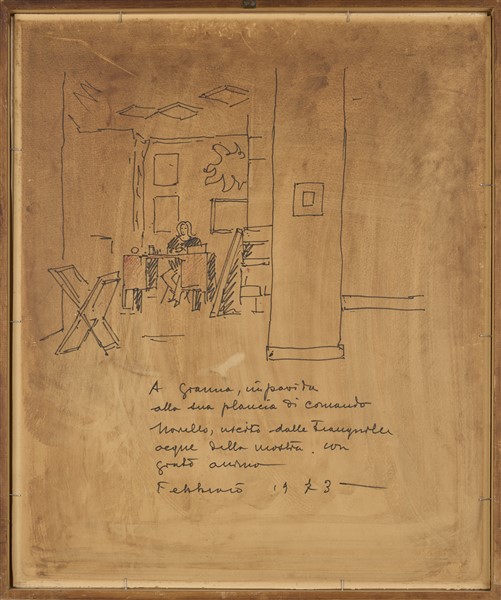 A Gianna, impavida
alla sua plancia di comando
Novello, uscito dalle tranquille
acque della mostra. con
grato animo
Febbraio 1973